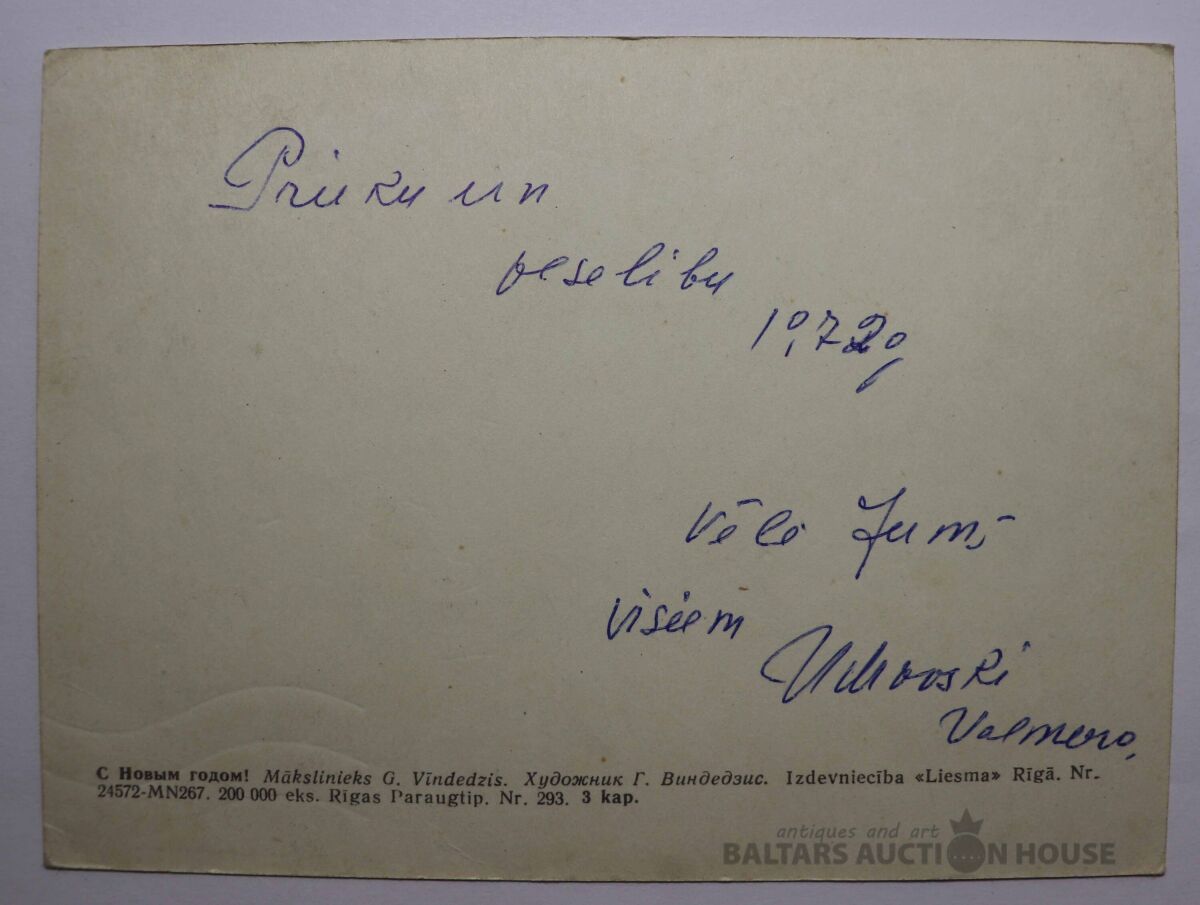 Prieku un
veselību
1972g,
Vēlē Jums
visiem
Valmierā,
С Новым годом! Mākslinieks G. Vīndedzis. Художник Г. Виндедзис. Izdevniecība «Liesma» Rīgā. Nr.
24572-MN267. 200 000 eks. Rīgas Paraugtip. Nr. 293. 3 kap.
antiques and art
BALTARS AUCTION HOUSE